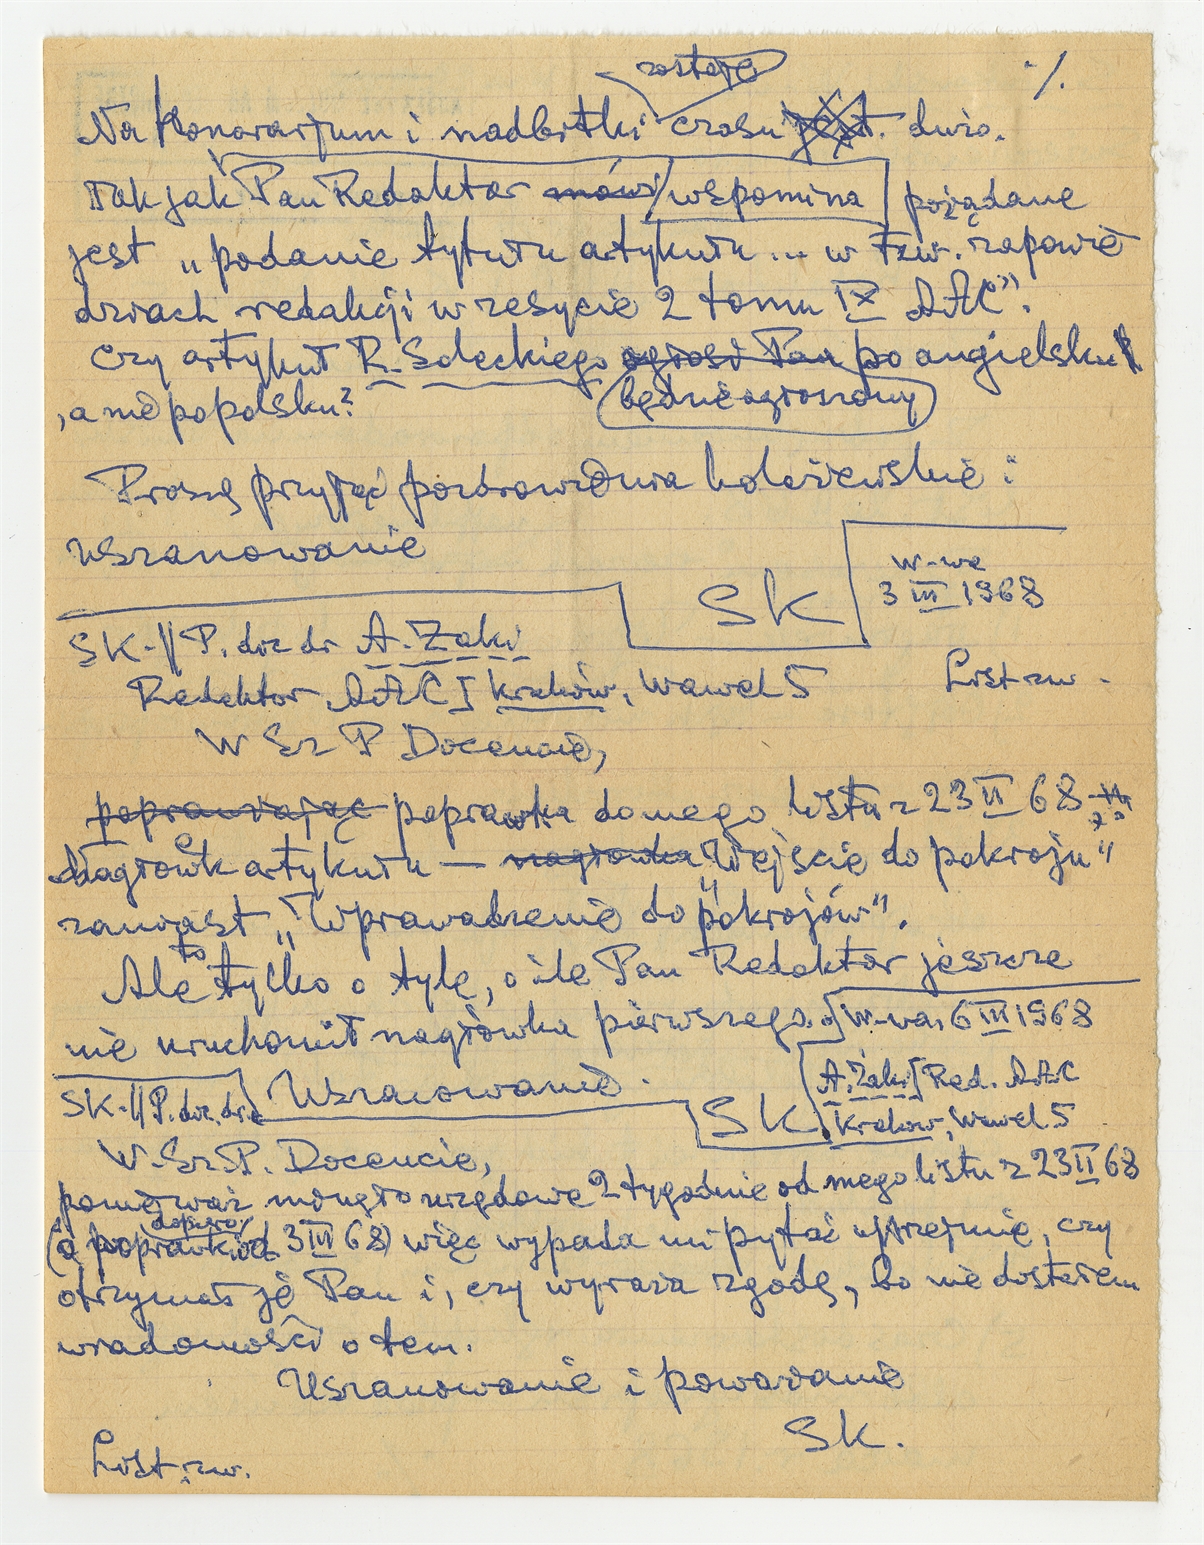 ./.
zostaje
Na honorarjum i nadbitki czasu jest dużo.
Tak jak Pan Redaktor mówi wspomina pożądane
jest „podanie tytułu artykułu ... w tzw. zapowie
dziach redakcji w zesycie 2 tomu IX AAC”.
Czy artykuł R. Soleckiego ogłosi Pan po angielsku
będzie ogłoszony
, a nie po polsku?
Proszę przyjąć pozdrowienia koleżeńskie i
Uszanowanie
SK
W-wa
3 III 1968
SK-// P. doc dr A. Żaki
Redaktor AAC Kraków, Wawel 5
List zw.
W Sz P Docencie,
poprawiając poprawka do mego listu z 23 II 68
Nagłówek artykułu — nagłówka „Wejście do pokroju”
zamiast „Wprowadzenie do pokrojów”.
to
Ale tylko o tyle, o ile Pan Redaktor jeszcze
nie uruchomił nagłówka pierwszego.
W-wa, 6 III 1968
Uszanowanie.
SK
SK-// P. doc. dr
A. Żaki Red. AAC
Kraków, Wawel 5
W. Sz. P. Docencie,
ponieważ minęło urzędowe 2 tygodnie od mego listu z 23 II 68
dopiero
(a poprawki od 3 III 68) więc wypada mi pytać uprzejmie, czy
otrzymał je Pan i, czy wyraża zgodę, bo nie dostałem
wiadomości o tem.
Uszanowanie i poważanie
SK.
List zw.